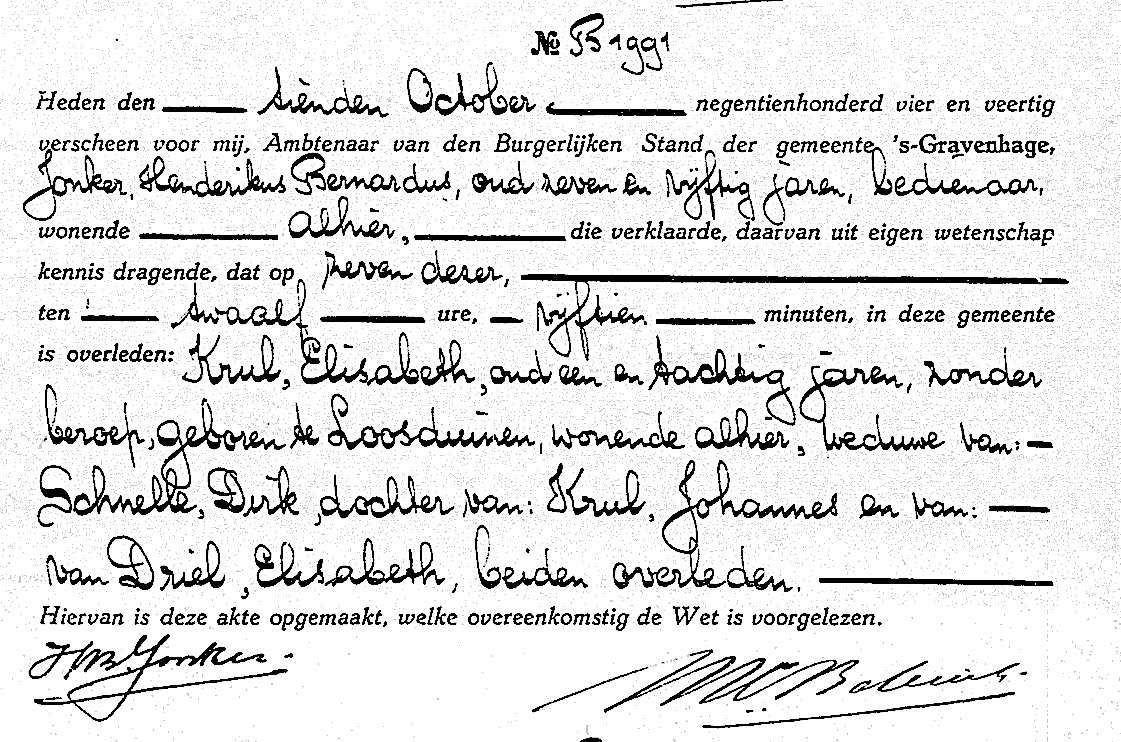 № B 1991
Heden den tienden October negentienhonderd vier en veertig
verscheen voor mij, Ambtenaar van den Burgerlijken Stand der gemeente 's-Gravenhage,
Jonker, Henderikus Bernardus, oud zeven en vijftig jaren, bedienaar,
wonende alhier, die verklaarde, daarvan uit eigen wetenschap
kennis dragende, dat op zeven dezer,
ten twaalf ure, vijftien minuten, in deze gemeente
is overleden: Krul, Elisabeth, oud een en tachtig jaren, zonder
beroep, geboren te Loosduinen, wonende alhier, weduwe van:
Schnelle, Dirk, dochter van: Krul, Johannes en van:
van Driel, Elisabeth, beiden overleden.
Hiervan is deze akte opgemaakt, welke overeenkomstig de Wet is voorgelezen.
HB Jonker.